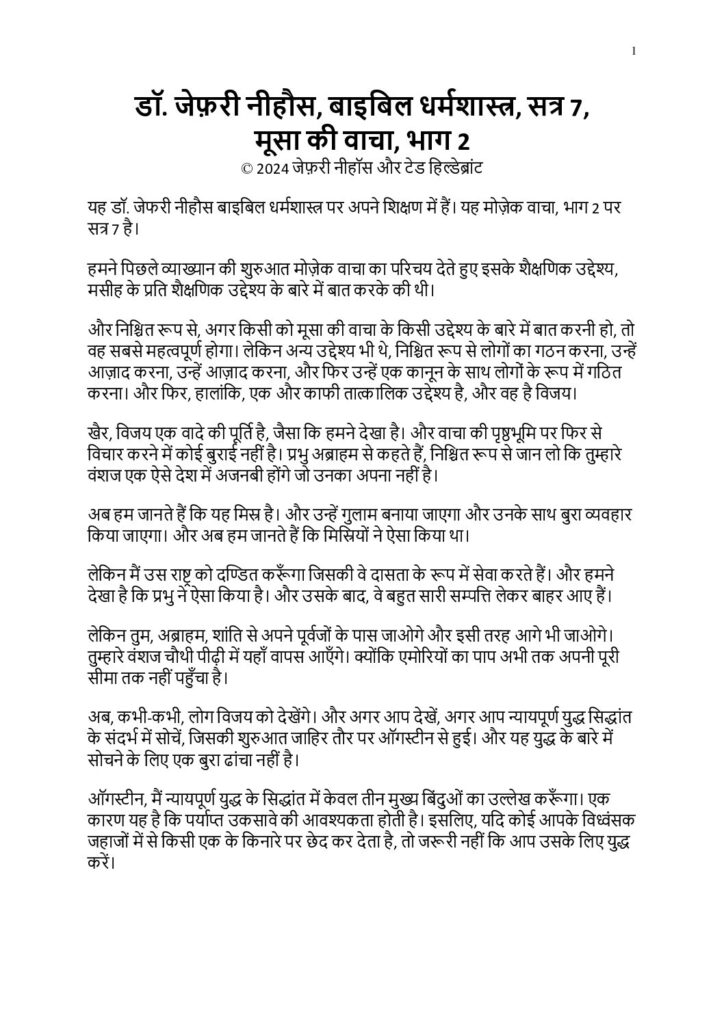 1
डॉ. जेफ़री नीहौस, बाइबिल धर्मशास्त्र, सत्र 7,
मूसा की वाचा, भाग 2
© 2024 जेफ़री नीहॉस और टेड हिल्डेब्रांट
यह डॉ. जेफरी नीहौस बाइबिल धर्मशास्त्र पर अपने शिक्षण में हैं। यह मोज़ेक वाचा, भाग 2 पर
सत्र 7 है।
हमने पिछले व्याख्यान की शुरुआत मोज़ेक वाचा का परिचय देते हुए इसके शैक्षणिक उद्देश्य,
मसीह के प्रति शैक्षणिक उद्देश्य के बारे में बात करके की थी।
और निश्चित रूप से, अगर किसी को मूसा की वाचा के किसी उद्देश्य के बारे में बात करनी हो, तो
वह सबसे महत्वपूर्ण होगा। लेकिन अन्य उद्देश्य भी थे, निश्चित रूप से लोगों का गठन करना, उन्हें
आज़ाद करना, उन्हें आज़ाद करना, और फिर उन्हें एक कानून के साथ लोगों के रूप में गठित
करना। और फिर, हालांकि, एक और काफी तात्कालिक उद्देश्य है, और वह है विजय।
खैर, विजय एक वादे की पूर्ति है, जैसा कि हमने देखा है। और वाचा की पृष्ठभूमि पर फिर से
विचार करने में कोई बुराई नहीं है। प्रभु अब्राहम से कहते हैं, निश्चित रूप से जान लो कि तुम्हारे
वंशज एक ऐसे देश में अजनबी होंगे जो उनका अपना नहीं है।
अब हम जानते हैं कि यह मिस्र है। और उन्हें गुलाम बनाया जाएगा और उनके साथ बुरा व्यवहार
किया जाएगा। और अब हम जानते हैं कि मिस्रियों ने ऐसा किया था।
लेकिन मैं उस राष्ट्र को दण्डित करूँगा जिसकी वे दासता के रूप में सेवा करते हैं। और हमने
देखा है कि प्रभु ने ऐसा किया है। और उसके बाद, वे बहुत सारी सम्पत्ति लेकर बाहर आए हैं।
लेकिन तुम, अब्राहम, शांति से अपने पूर्वजों के पास जाओगे और इसी तरह आगे भी जाओगे।
तुम्हारे वंशज चौथी पीढ़ी में यहाँ वापस आएँगे। क्योंकि एमोरियों का पाप अभी तक अपनी पूरी
सीमा तक नहीं पहुँचा है।
अब, कभी-कभी, लोग विजय को देखेंगे। और अगर आप देखें, अगर आप न्यायपूर्ण युद्ध सिद्धांत
के संदर्भ में सोचें, जिसकी शुरुआत जाहिर तौर पर ऑगस्टीन से हुई। और यह युद्ध के बारे में
सोचने के लिए एक बुरा ढांचा नहीं है।
ऑगस्टीन, मैं न्यायपूर्ण युद्ध के सिद्धांत में केवल तीन मुख्य बिंदुओं का उल्लेख करूँगा। एक
कारण यह है कि पर्याप्त उकसावे की आवश्यकता होती है। इसलिए, यदि कोई आपके विध्वंसक
जहाजों में से किसी एक के किनारे पर छेद कर देता है, तो जरूरी नहीं कि आप उसके लिए युद्ध
करें।